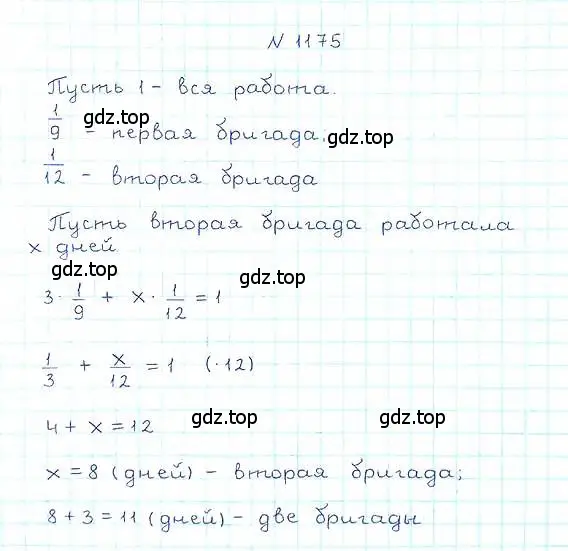 N 1175
Пусть 1 - вся работа.
gdz.top
1/9 - первая бригада.
gdz.top
1/12 - вторая бригада
Пусть вторая бригада работала
x дней
gdz.top
gdz.top
3 · 1/9 + x · 1/12 = 1
1/3 + x/12 = 1 (·12)
4 + x = 12
gdz.top
gdz.top
x = 8 (дней) - вторая бригада;
8 + 3 = 11 (дней) - две бригады